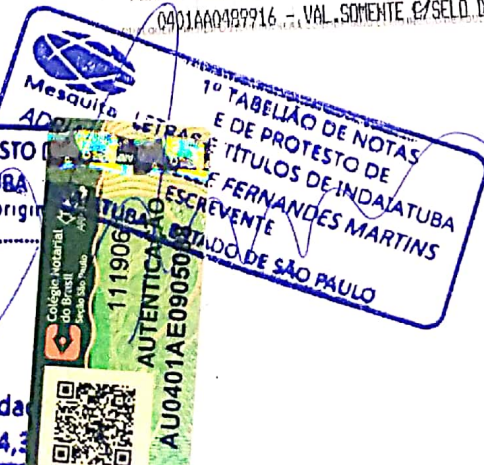 0401AA0489916 - VAL.SOMENTE C/SELO D
Mesquita
1º TABELIÃO DE NOTAS
E DE PROTESTO DE
LETRAS E TÍTULOS DE INDAIATUBA
FERNANDES MARTINS
ESCREVENTE
ESTADO DE SÃO PAULO
STO
UBA
origin
Colégio Notarial
do Brasil
Seção São Paulo
111906
AUTENTICAÇÃO
AU0401AE09050
da
4,3